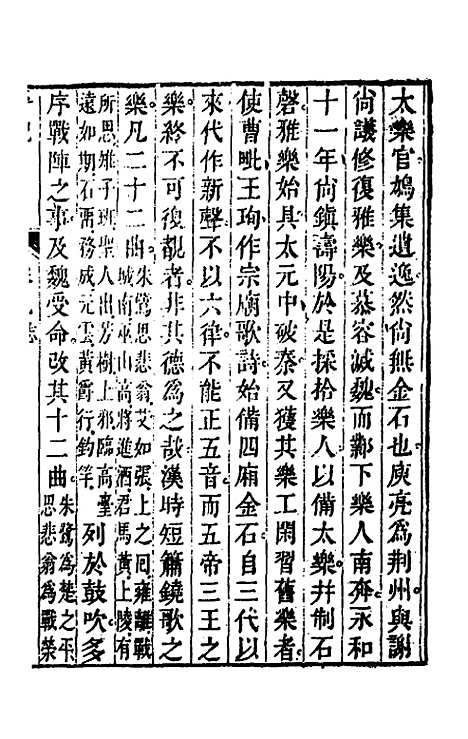 太樂官鳩集遺逸然尙無金石也庾亮爲荆州與謝
尙議修復雅樂及慕容滅魏而鄴下樂人南奔永和
十一年尙鎮壽陽於是採拾樂人以備太樂幷制石
磬雅樂始具太元中破秦又獲其樂工閑習舊樂者
使曹毗王珣作宗廟歌詩始備四廂金石自三代以
來代作新聲不以六律不能正五音而五帝三王之
樂終不可復觀者非其德爲之哉漢時短簫鐃歌之
樂凡二十二曲朱鷺思悲翁艾如張上之回雍離戰
城南巫山高將進酒君馬黃上陵有
所思雉子班聖人出芳樹上邪臨高臺
遠如期石畱務成元雲黃爵行釣竿列於鼓吹多
序戰陣之事及魏受命改其十二曲朱鷺爲楚之平
思悲翁爲戰滎